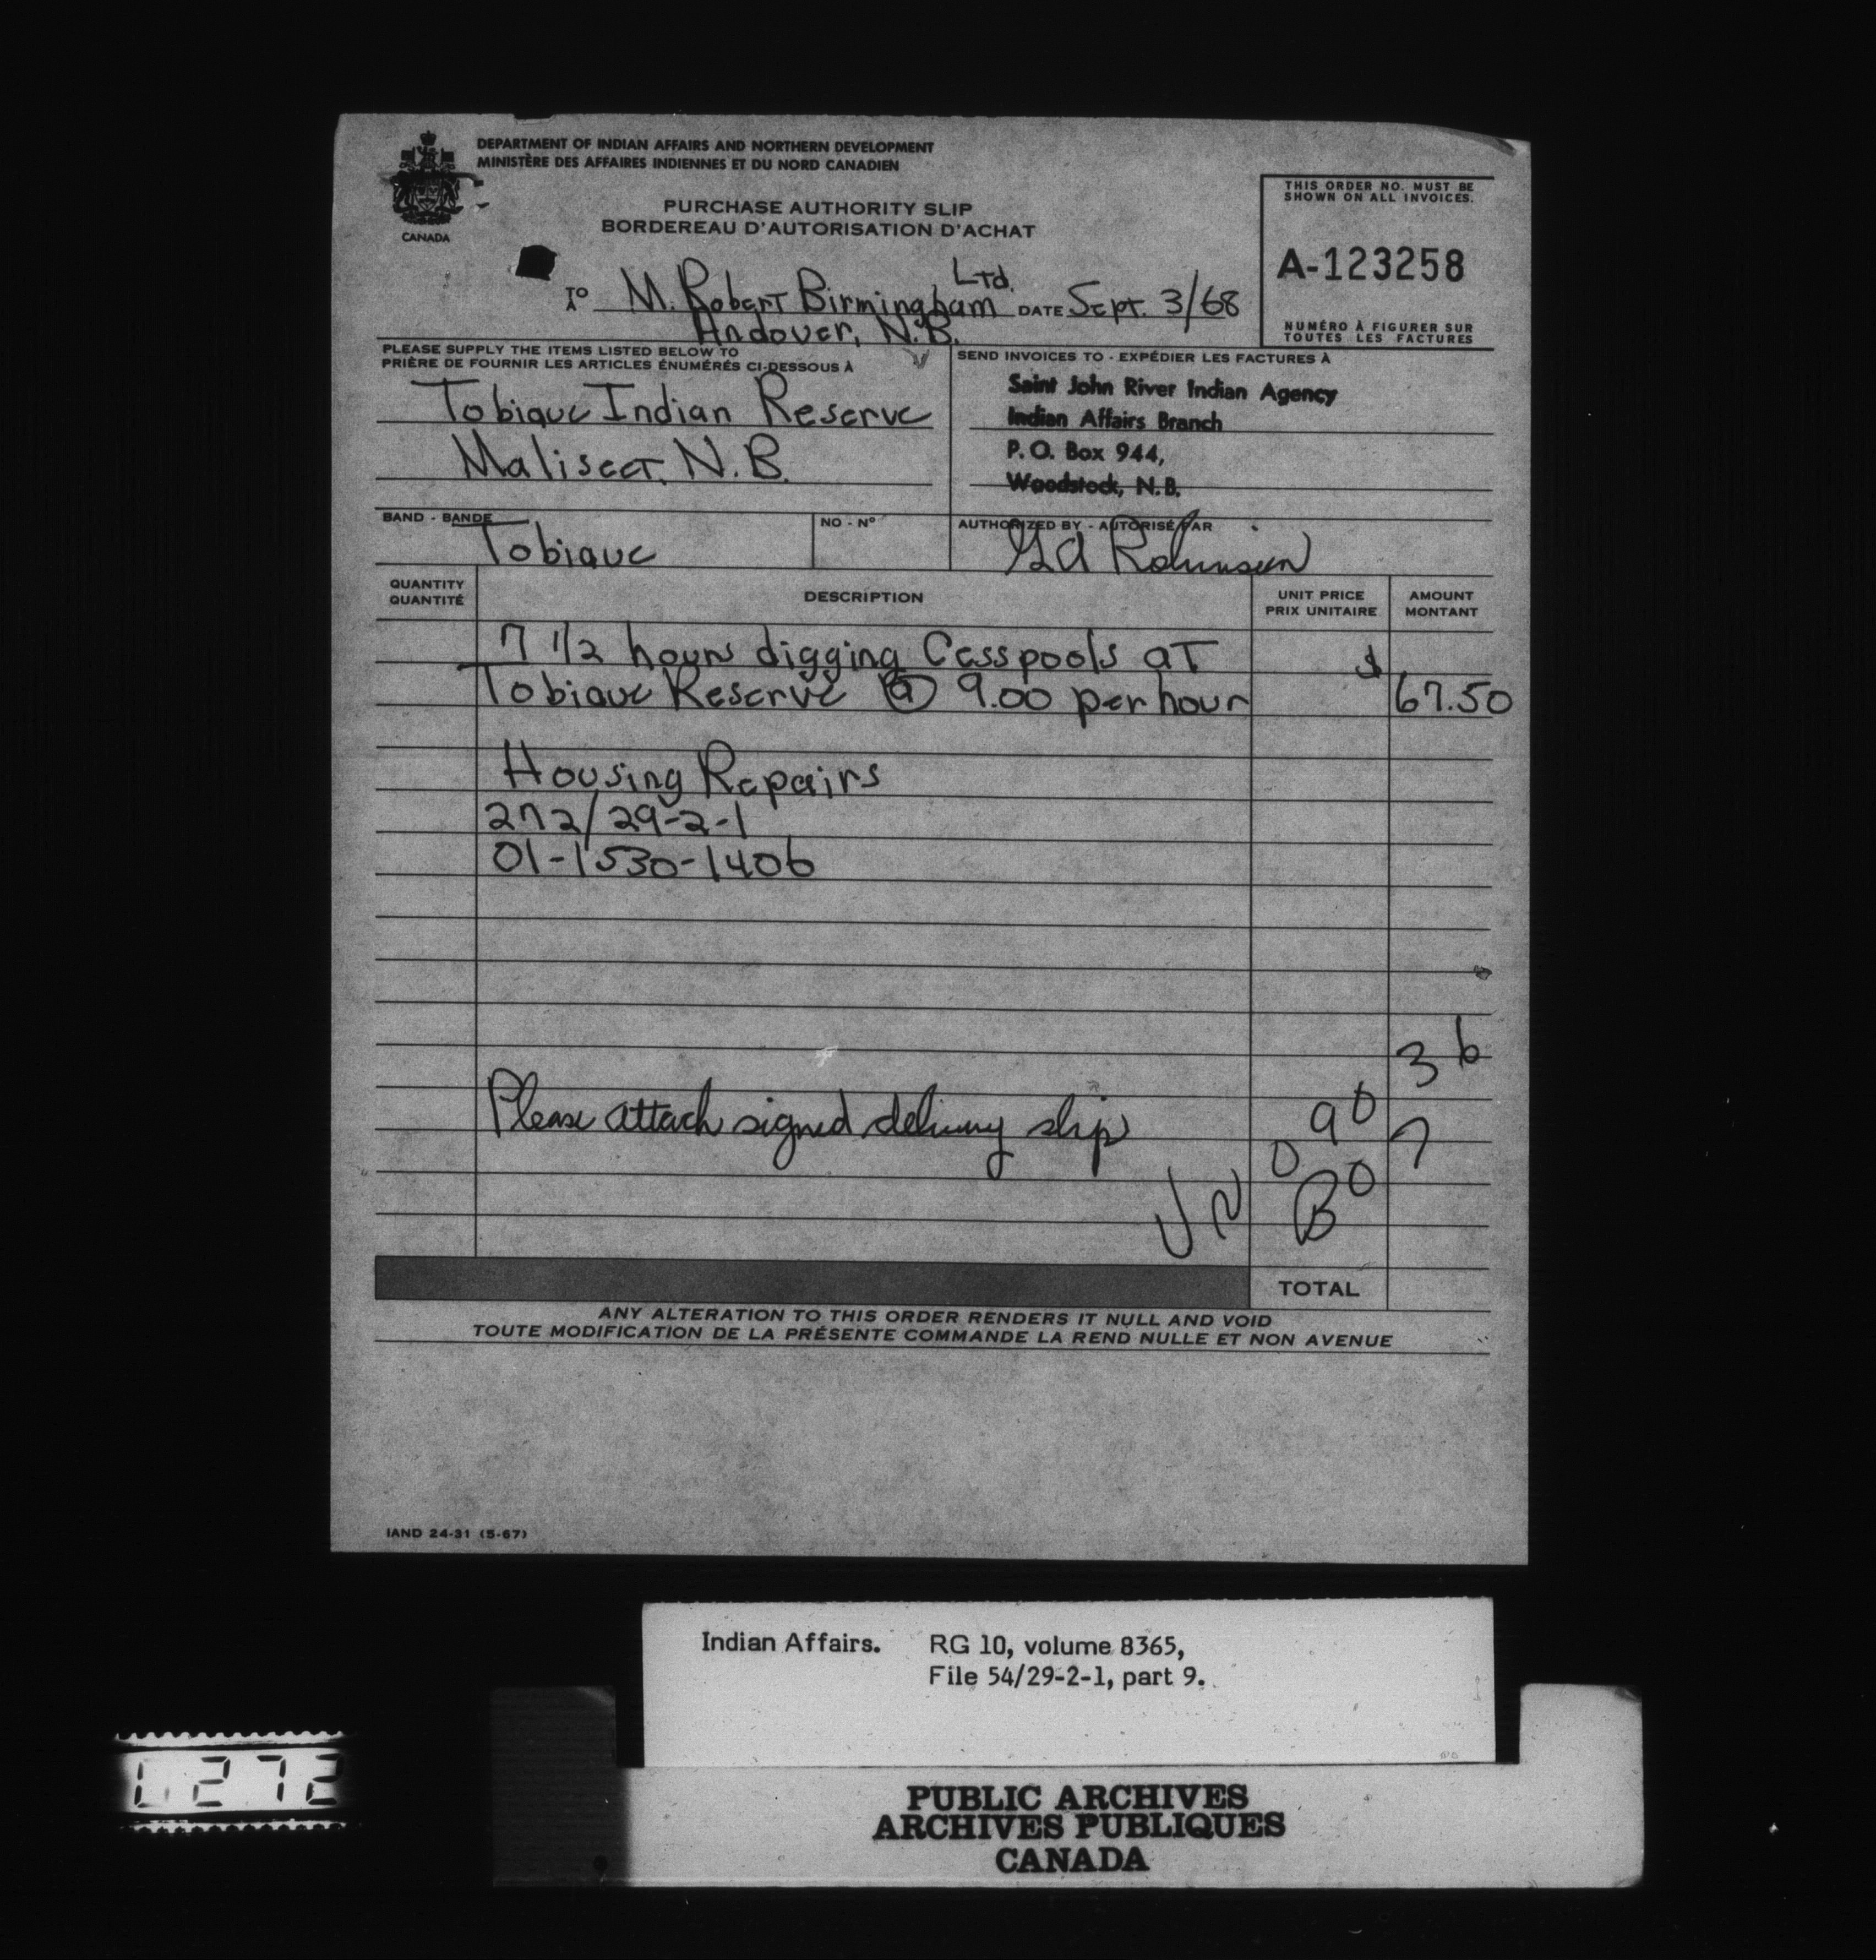 DEPARTMENT OF INDIAN AFFAIRS AND NORTHERN DEVELOPMENT
MINISTÈRE DES AFFAIRES INDIENNES ET DU NORD CANADIEN
CANADA
PURCHASE AUTHORITY SLIP
BORDEREAU D'AUTORISATION D'ACHAT
THIS ORDER NO. MUST BE
SHOWN ON ALL INVOICES.
A-123258
NUMÉRO À FIGURER SUR
TOUTES LES FACTURES
TO
À
M. Robert Birmingham Ltd. DATE Sept. 3/68
Andover, N.B.
PLEASE SUPPLY THE ITEMS LISTED BELOW TO
PRIÈRE DE FOURNIR LES ARTICLES ÉNUMÉRÉS CI-DESSOUS À
Tobique Indian Reserve
Maliseet, N.B.
SEND INVOICES TO - EXPÉDIER LES FACTURES À
Saint John River Indian Agency
Indian Affairs Branch
P.O. Box 944,
Woodstock, N.B.
BAND - BANDE
Tobique
NO - Nº
AUTHORIZED BY - AUTORISÉ PAR
Robinson
QUANTITY
QUANTITÉ
DESCRIPTION
UNIT PRICE
PRIX UNITAIRE
AMOUNT
MONTANT
7 1/2 hours digging Cesspools at
Tobique Reserve @ 9.00 per hour $ 67.50
Housing Repairs
272/29-2-1
01-1530-1406
3 6
Please attach signed delivery slip
9 0 7
0 B 0
TOTAL
ANY ALTERATION TO THIS ORDER RENDERS IT NULL AND VOID
TOUTE MODIFICATION DE LA PRÉSENTE COMMANDE LA REND NULLE ET NON AVENUE
IAND 24-31 (5-67)
Indian Affairs. RG 10, volume 8365,
File 54/29-2-1, part 9.
0272
PUBLIC ARCHIVES
ARCHIVES PUBLIQUES
CANADA